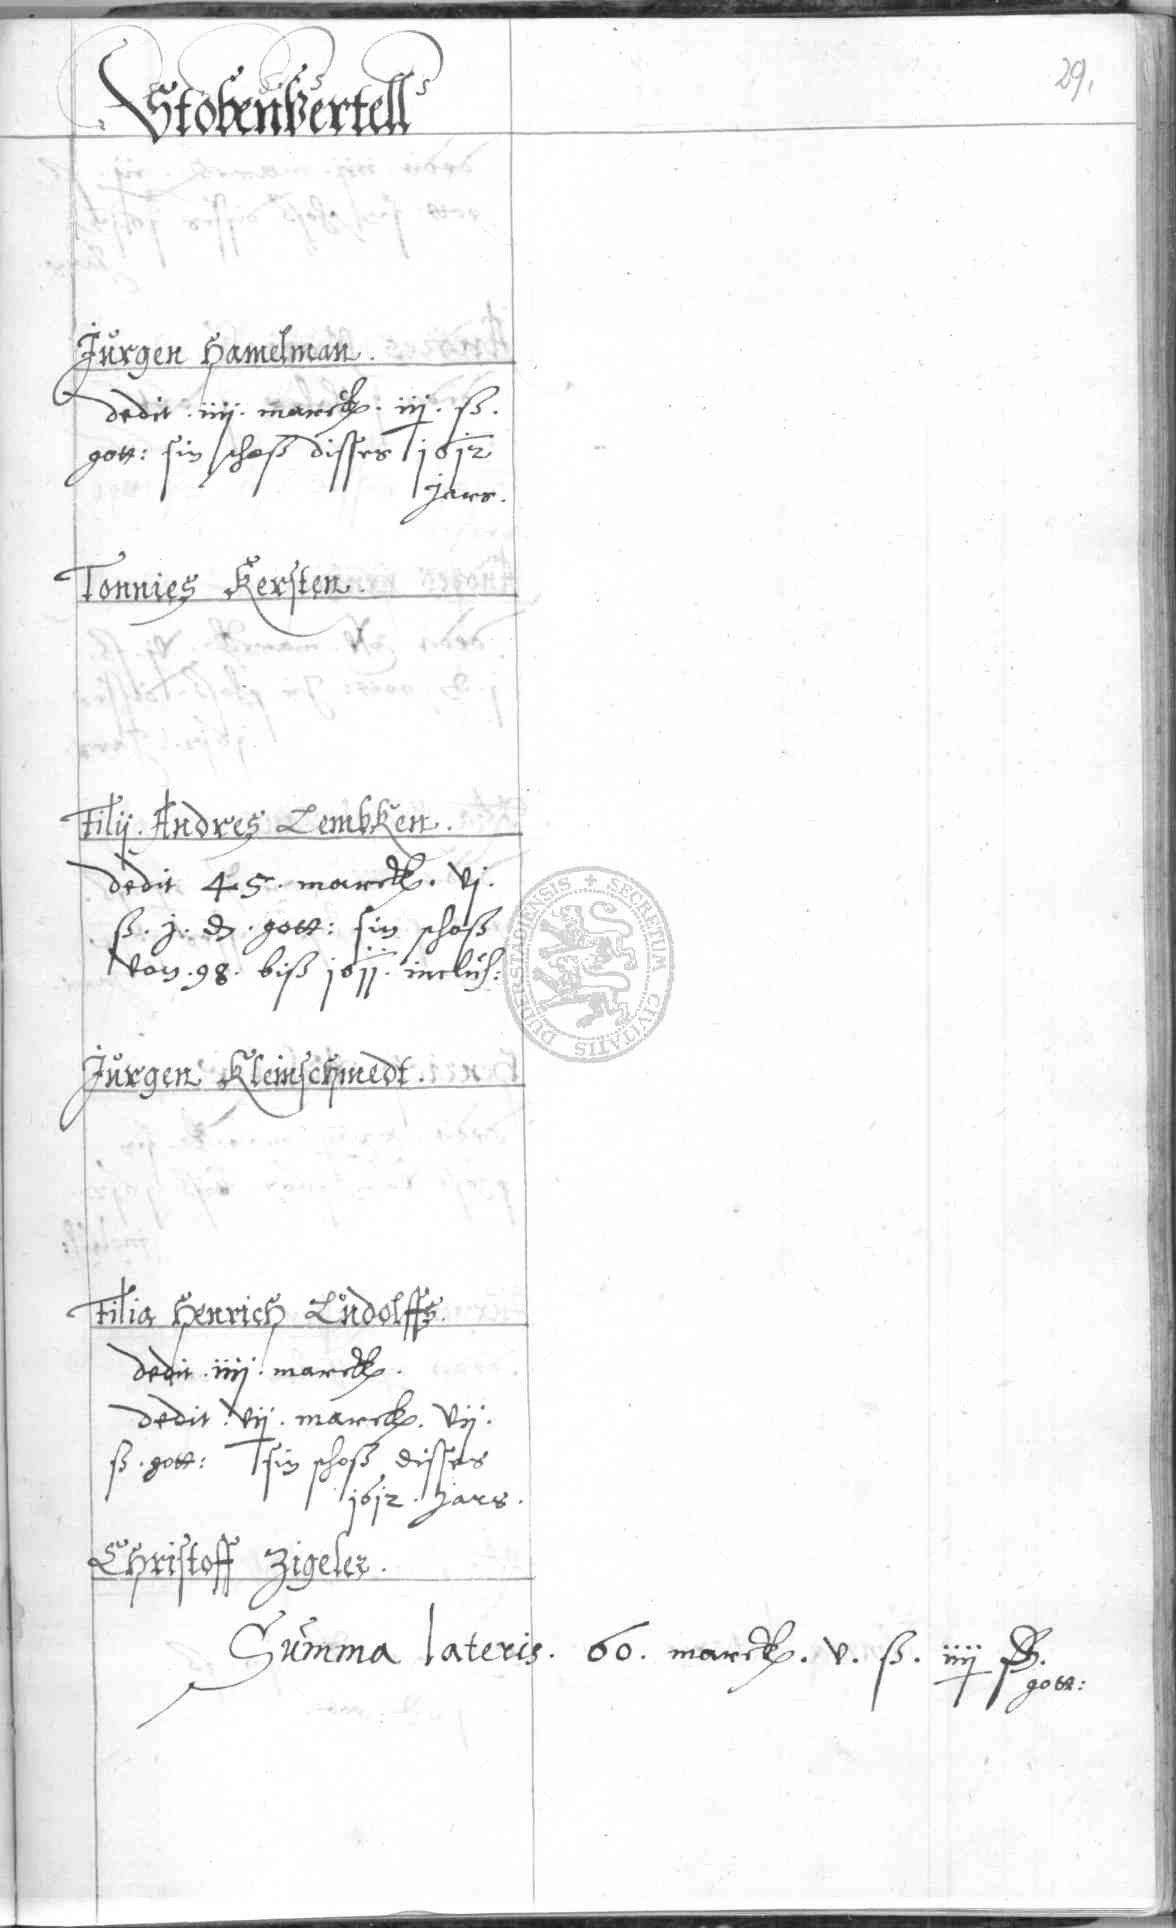 29.
Stobenvertell
Jürgen Hamelman.
dedit . iiij . marck . iij . ß .
gott: sin schoß disses 1612
jars.
Tonnies Kersten.
Filij . Andres Lembken.
dedit 45 . marck . vj .
ß . j . d . gott: sin schoß
von . 98 . biß 1611 . inclus:
Jürgen Kleinschmedt.
Filia Henrich Ludolffs.
dedit . iiij . marck .
dedit . vij . marck . vij .
ß . gott: sin schoß disses
1612 . jars .
Christoff Zigeler.
Summa lateris . 60 . marck . v . ß . iiij
gott:
SECRETUM CIVITATIS DUDERSTADIENSIS